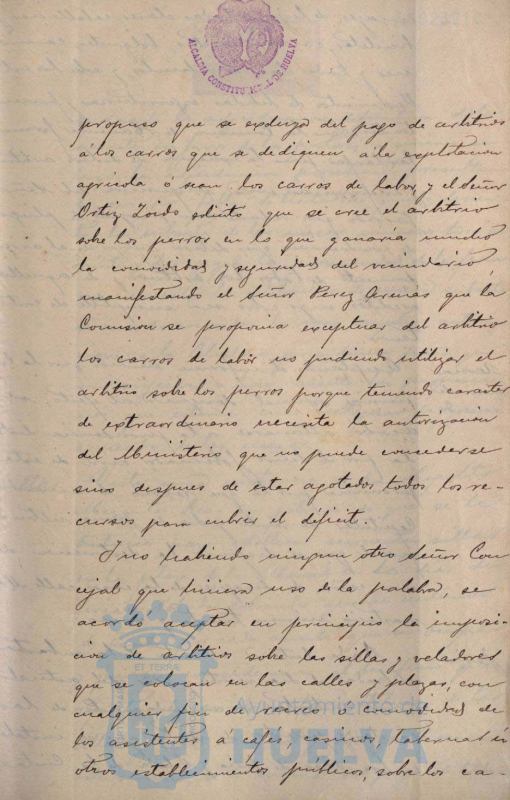 ALCALDIA CONSTITUCIONAL DE HUELVA
propuso que se excluya del pago de arbitrios
á los carros que se dediquen á la explotacion
agricola ó sean los carros de labor, y el Señor
Ortiz Toido solicitó que se cree el arbitrio
sobre los perros en lo que ganaria mucho
la comodidad y seguridad del vecindario,
manifestando el Señor Perez Arenas que la
Comision se proponia exceptuar del arbitrio
los carros de labor no pudiendo utilizar el
arbitrio sobre los perros porque teniendo caracter
de extraordinario necesita la autorizacion
del Ministerio que no puede concederse
sino despues de estar agotados todos los re-
cursos para cubrir el déficit.
Y no habiendo ningun otro Señor Con-
cejal que hiciera uso de la palabra, se
acordó aceptar en principio la imposi-
cion de arbitrios sobre las sillas y veladores
que se colocan en las calles y plazas, con
cualquier fin de recreo ó comodidad de
los asistentes á cafés, casinos, tabernas ú
otros establecimientos públicos; sobre los ca-
Ayuntamiento de
HUELVA